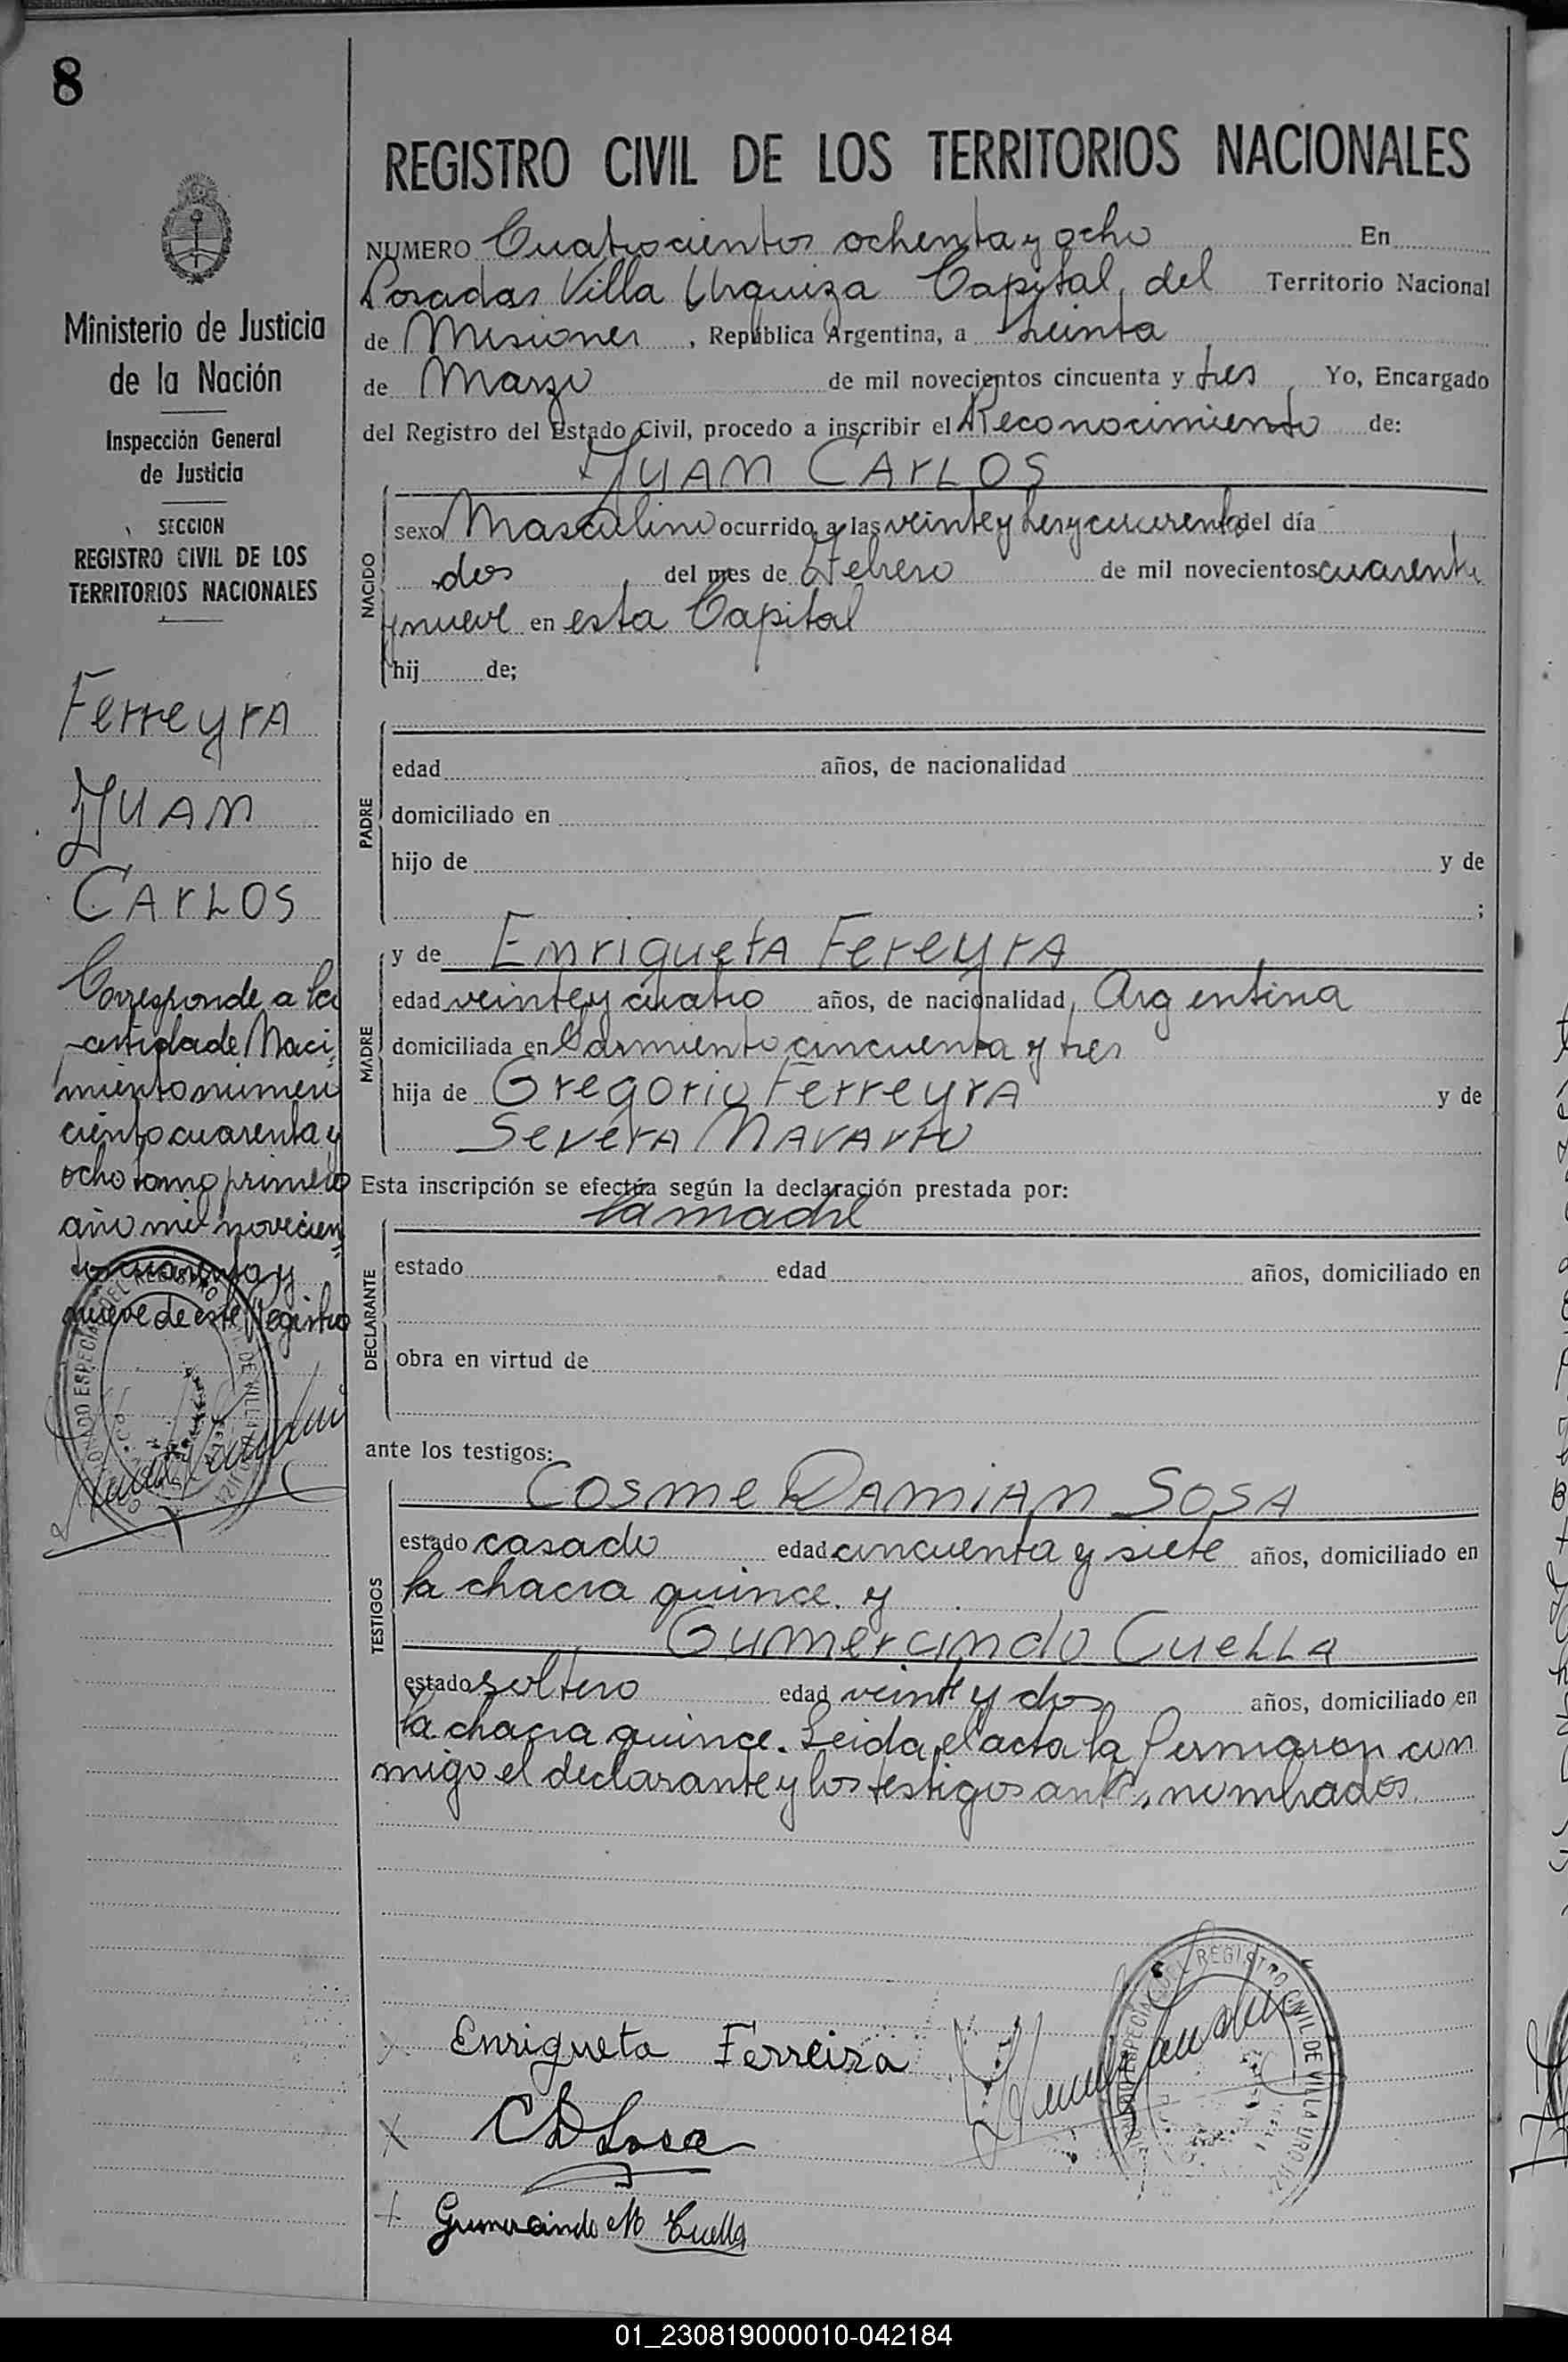 8
REGISTRO CIVIL DE LOS TERRITORIOS NACIONALES
NUMERO Cuatrocientos ochenta y ocho En
Posadas Villa Urquiza Capital del Territorio Nacional
de Misiones, República Argentina, a treinta
de Marzo de mil novecientos cincuenta y tres Yo, Encargado
del Registro del Estado Civil, procedo a inscribir el Reconocimiento de:
JUAN CARLOS
NACIDO
sexo Masculino ocurrido a las veinte y tres y cuarenta del día
dos del mes de Febrero de mil novecientos cuarenta
y nueve en esta Capital
hij de;
PADRE
edad años, de nacionalidad
domiciliado en
hijo de y de
;
MADRE
y de Enriqueta Fereyra
edad veinte y cuatro años, de nacionalidad Argentina
domiciliada en Sarmiento cincuenta y tres
hija de Gregorio Ferreyra y de
Severa Navarro
Esta inscripción se efectúa según la declaración prestada por:
la madre
DECLARANTE
estado edad años, domiciliado en
obra en virtud de
ante los testigos:
TESTIGOS
Cosme Damian Sosa
estado casado edad cincuenta y siete años, domiciliado en
la chacra quince. y
Gumercindo Cuella
estado soltero edad veinte y dos años, domiciliado en
la chacra quince. Leida el acta la firmaron con
migo el declarante y los testigos antes nombrados.
Enriqueta Ferreira
C D Sosa
Gumercindo M Cuella
Ministerio de Justicia
de la Nación
Inspección General
de Justicia
SECCION
REGISTRO CIVIL DE LOS
TERRITORIOS NACIONALES
Ferreyra
Juan
Carlos
Corresponde a la
acta de Naci-
miento número
ciento cuarenta y
ocho tomo primero
año mil novecien=
tos cuarenta y
nueve de este Registro
01_230819000010-042184